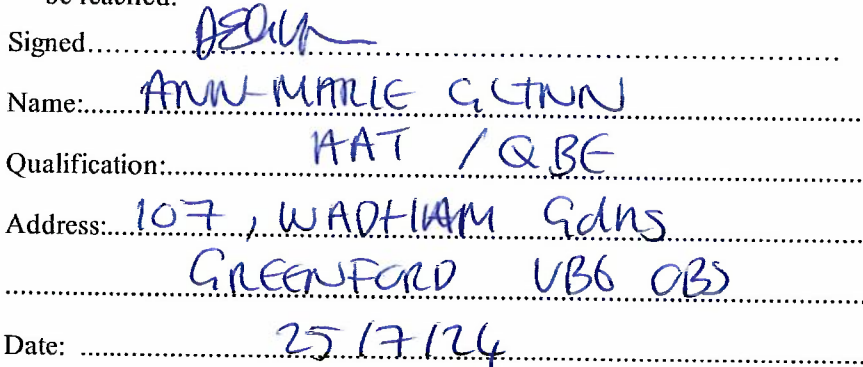 be reached.
Signed
Name: ANN-MARIE GLYNN
Qualification: AAT / QBE
Address: 107, WADHAM Gdns
GREENFORD UB6 0BS
Date: 25/7/24